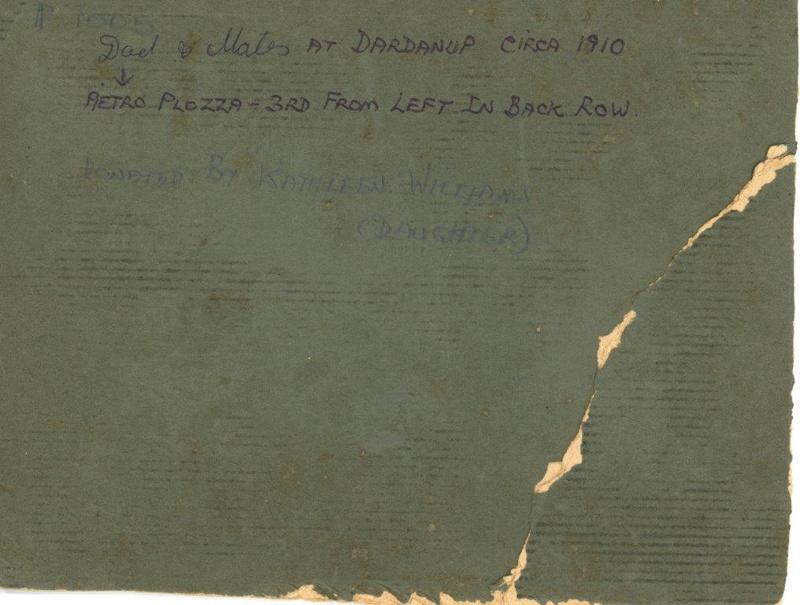 P 1005
Dad & Mates AT DARDANUP CIRCA 1910
↓
PIETRO PLOZZA = 3RD FROM LEFT IN BACK ROW.
DONATED BY KATHLEEN WILLIAMS
(DAUGHTER)